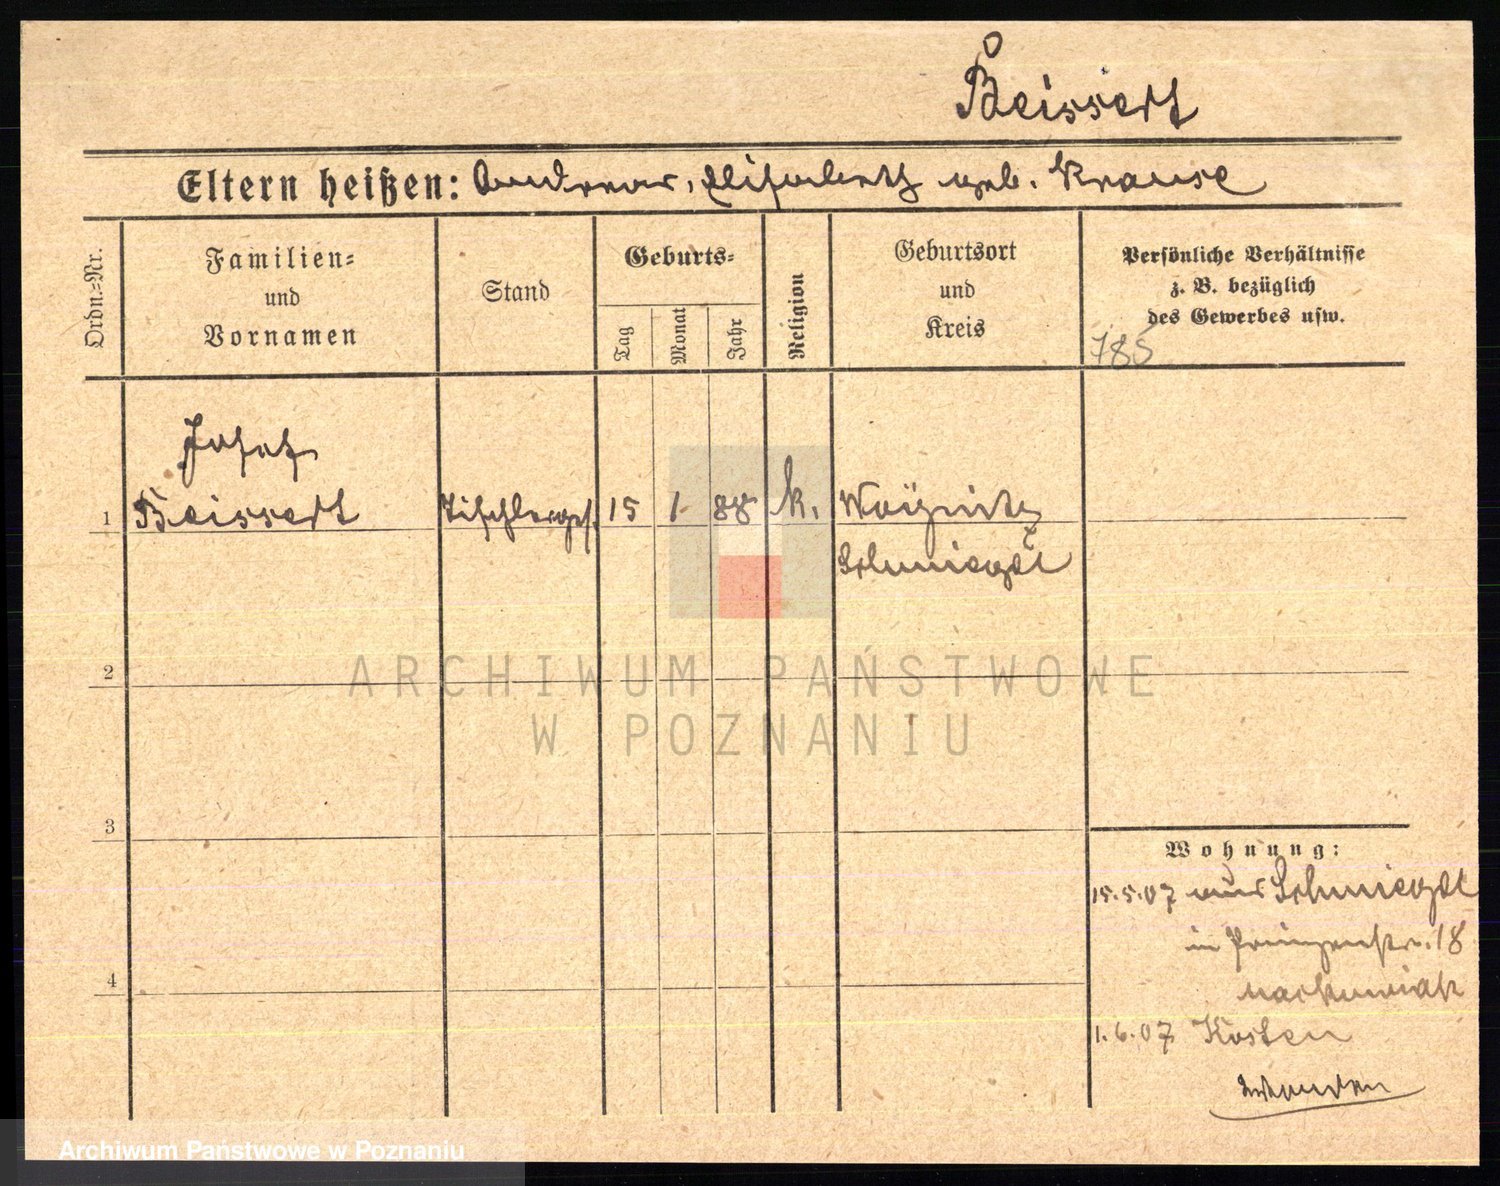 Beissert
Eltern heißen: Andreas, Elisabeth geb. Krause
Ordn.=Nr.
Familien=
und
Vornamen
Stand
Geburts=
Tag
Monat
Jahr
Religion
Geburtsort
und
Kreis
Persönliche Verhältnisse
z. B. bezüglich
des Gewerbes usw.
785
Josef
1 Beissert Tischlerges. 15 1. 88 k. Woiynitz
Schmiegel
2
3
4
Wohnung:
15.5.07 aus Schmiegel
in Prinzenstr. 18
1.6.07 Kosten
ARCHIWUM PAŃSTWOWE
W POZNANIU
Archiwum Państwowe w Poznaniu